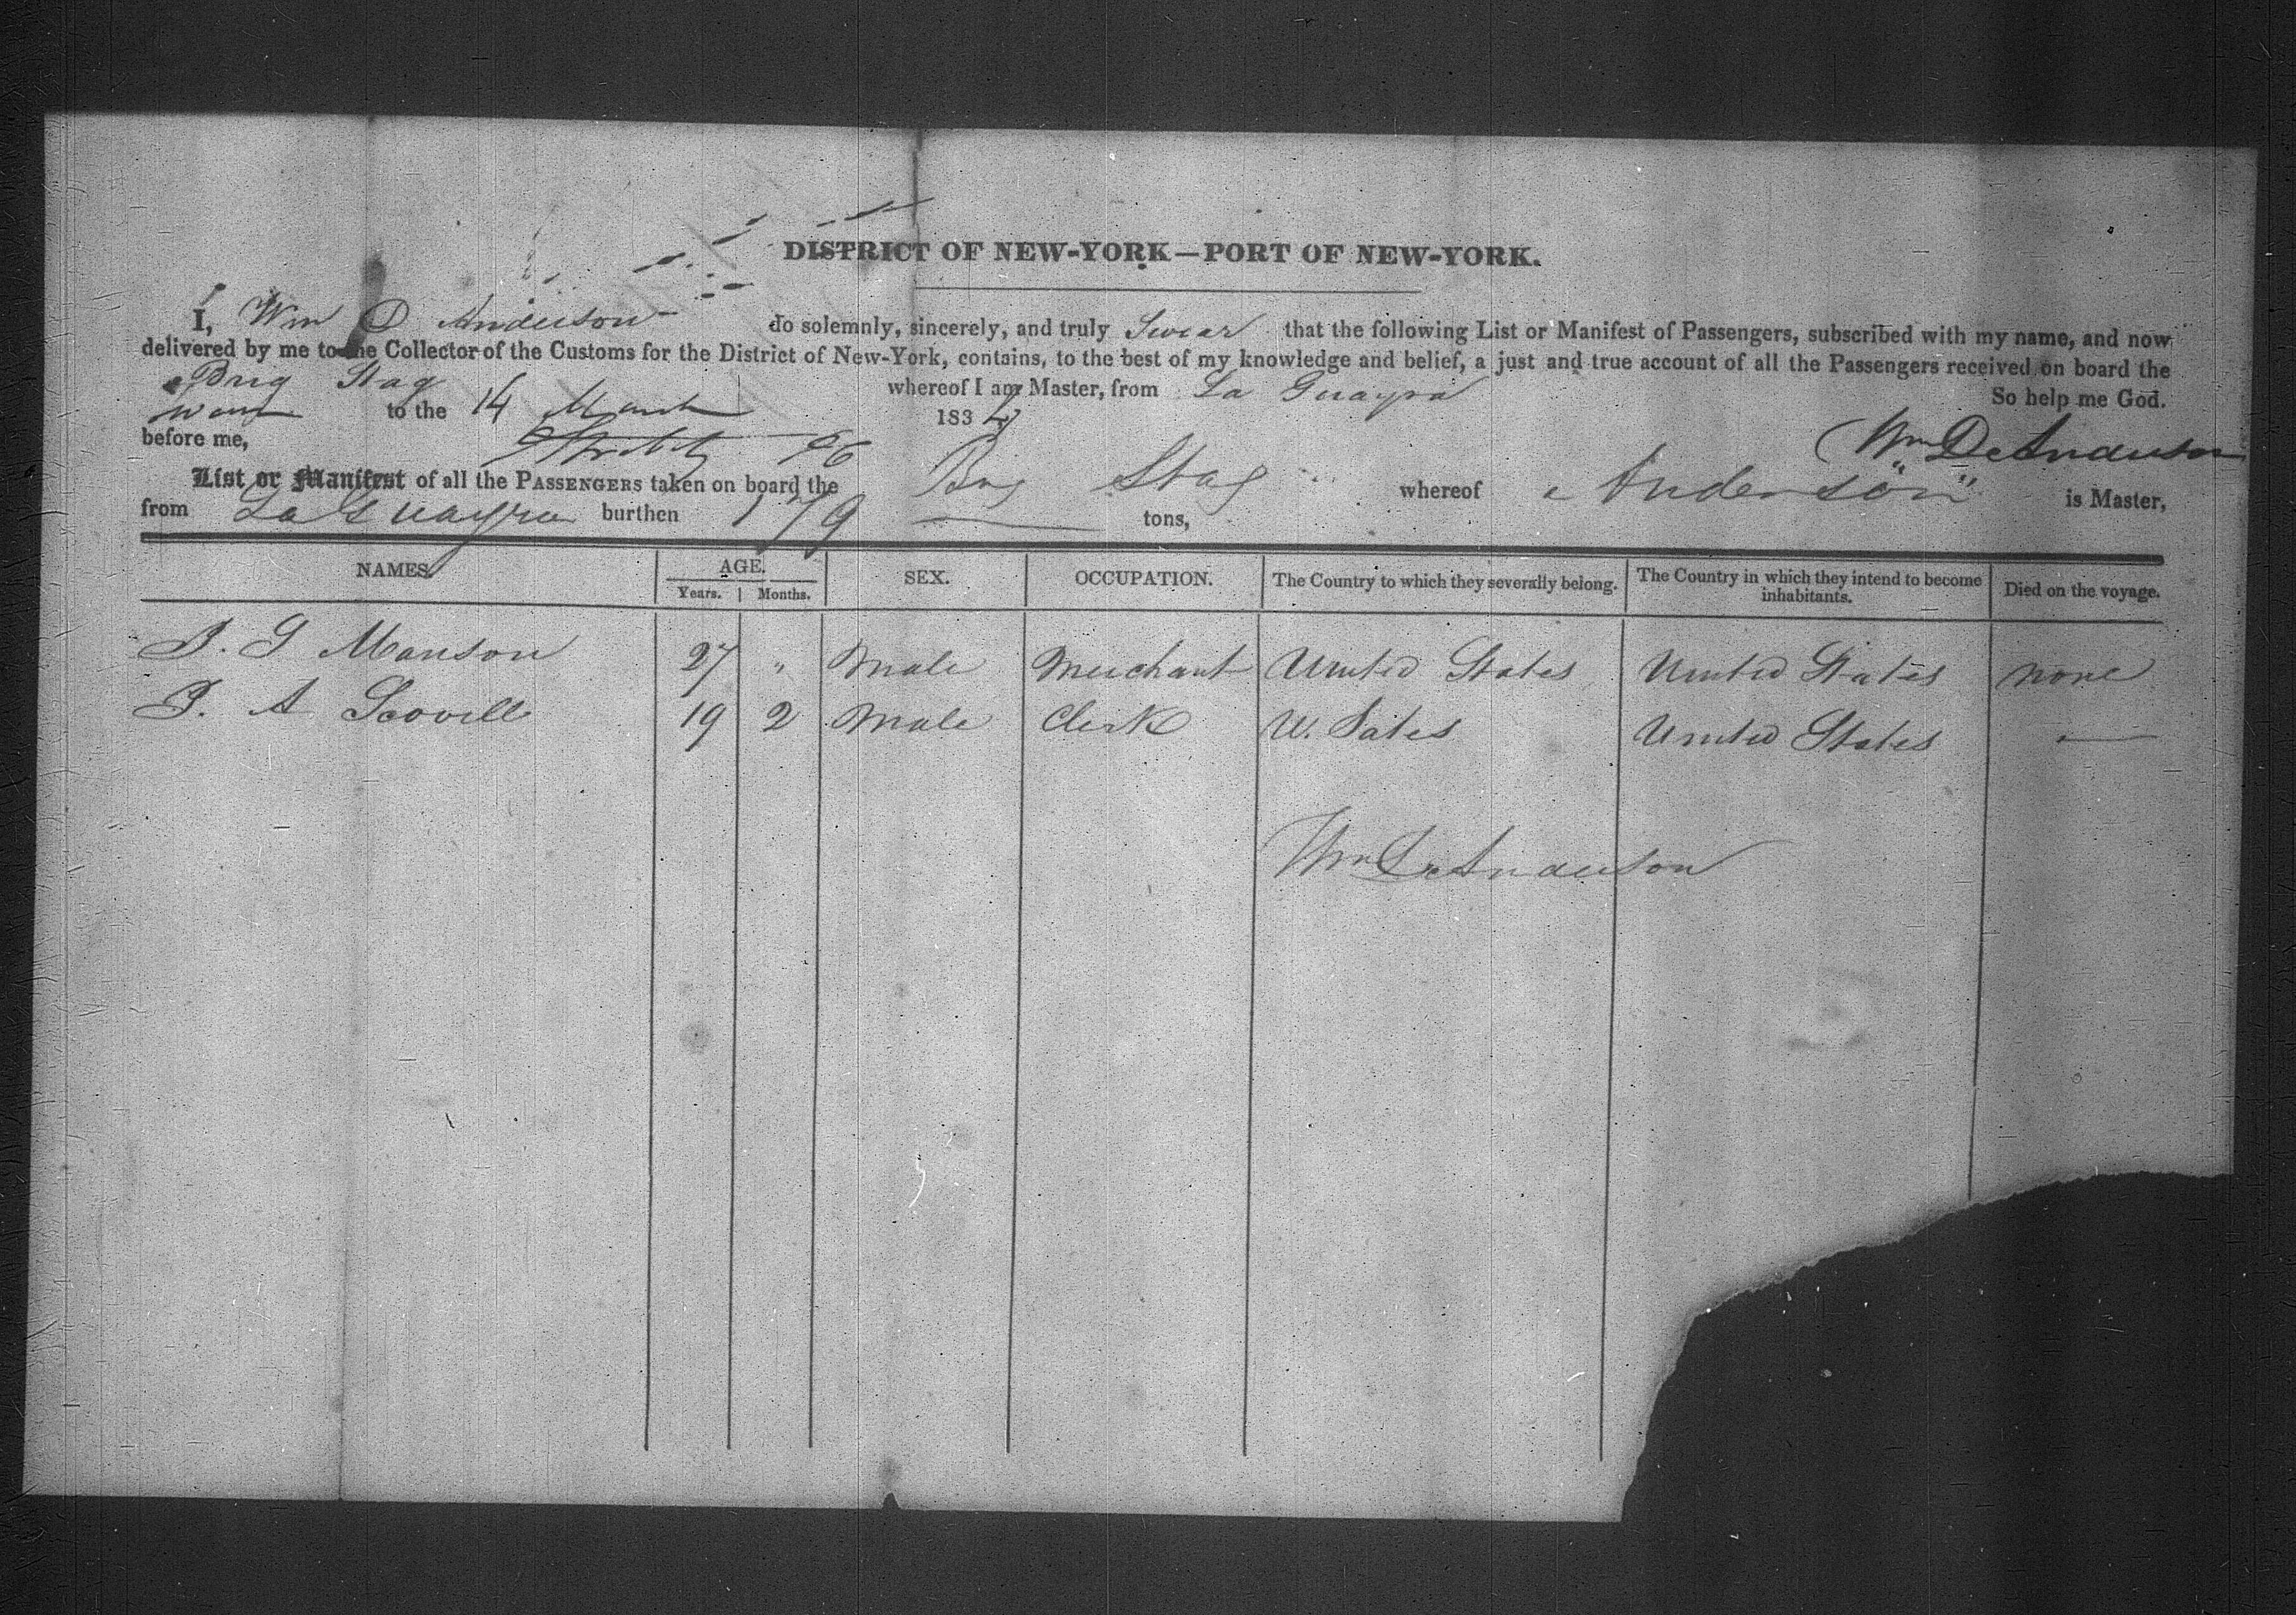 DISTRICT OF NEW-YORK—PORT OF NEW-YORK.
I, Wm D Anderson do solemnly, sincerely, and truly Swear that the following List or Manifest of Passengers, subscribed with my name, and now
delivered by me to the Collector of the Customs for the District of New-York, contains, to the best of my knowledge and belief, a just and true account of all the Passengers received on board the
Brig Stag whereof I am Master, from La Guayra So help me God.
to the 14 March 183
before me, Wm D Anderson
List or Manifest of all the PASSENGERS taken on board the Brig Stag whereof Anderson is Master,
from La Guayra burthen 179 tons,
NAMES. AGE. SEX. OCCUPATION. The Country to which they severally belong. The Country in which they intend to become inhabitants. Died on the voyage.
Years. Months.
J. G Manson 27 " Male Merchant United States United States none
J. A Scovell 19 2 Male Clerk U. Sates United States —
Wm D Anderson